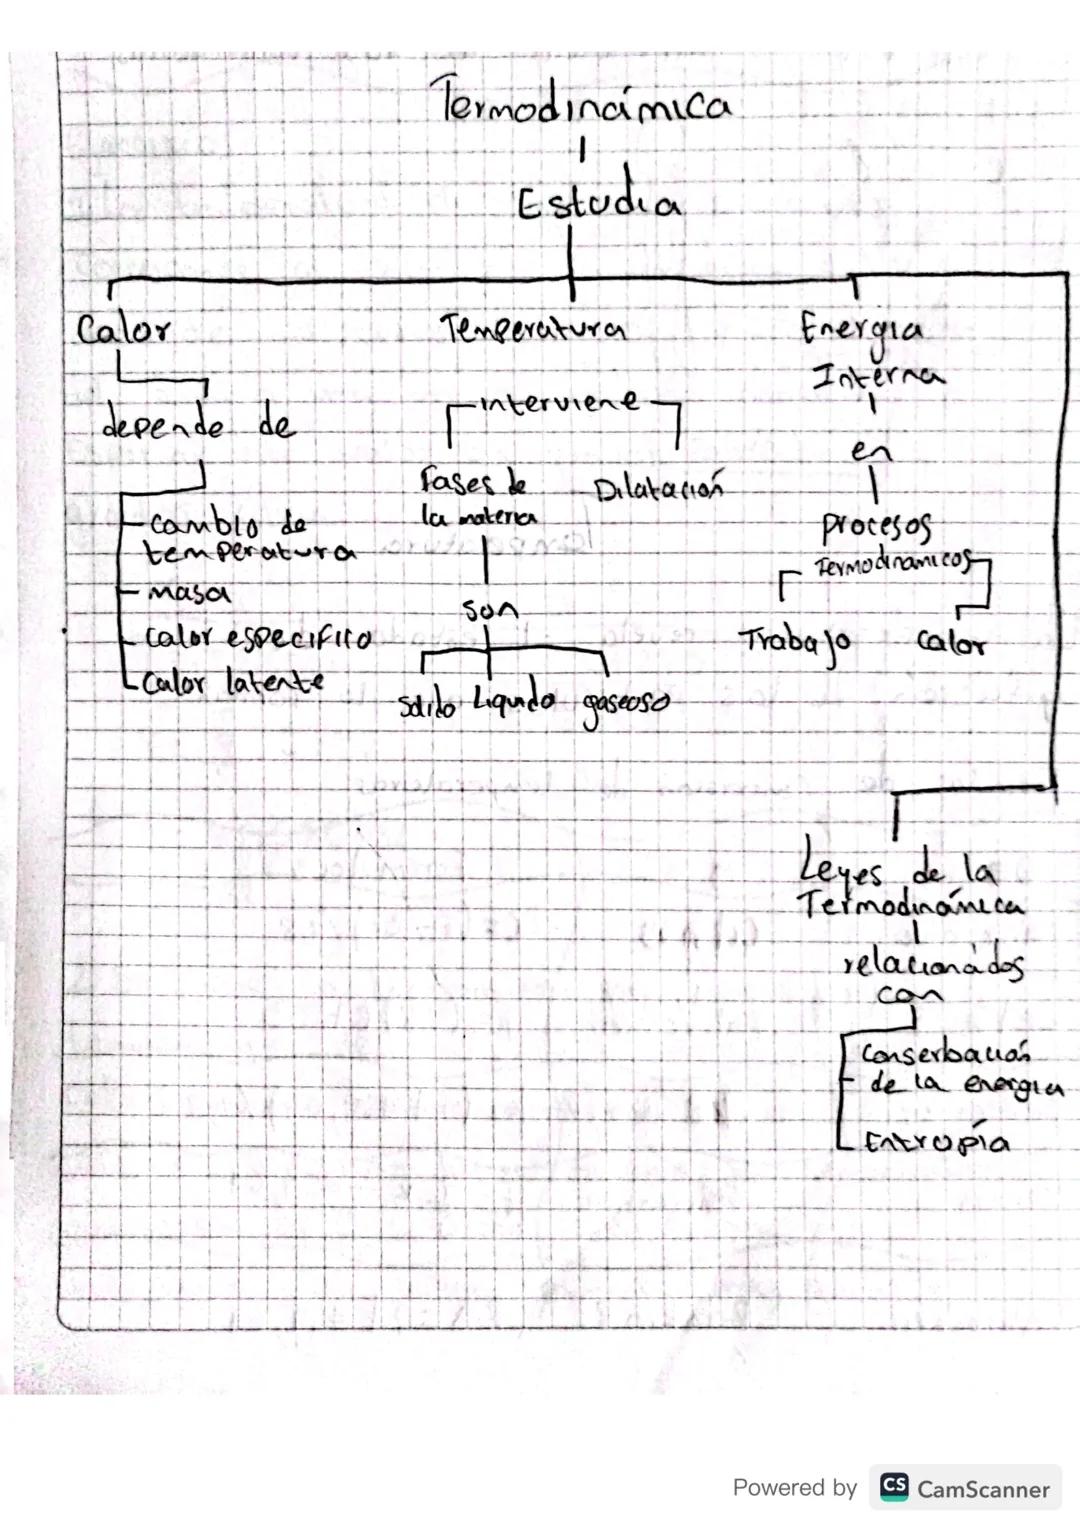 Termodinámica
Estudia
Calor
depende de
- cambio de
temperatura
- masa
- calor especifico
- Calor latente
Temperatura
interviene
Fases de
la materia
son
Solido Liquido gaseoso
Dilatación
Energia
Interna
en
procesos
Termodinamicos
Trabajo Calor
Leyes de la
Termodinámica
relacionados
con
Conserbación
de la energia
Entropía
Powered by CS CamScanner